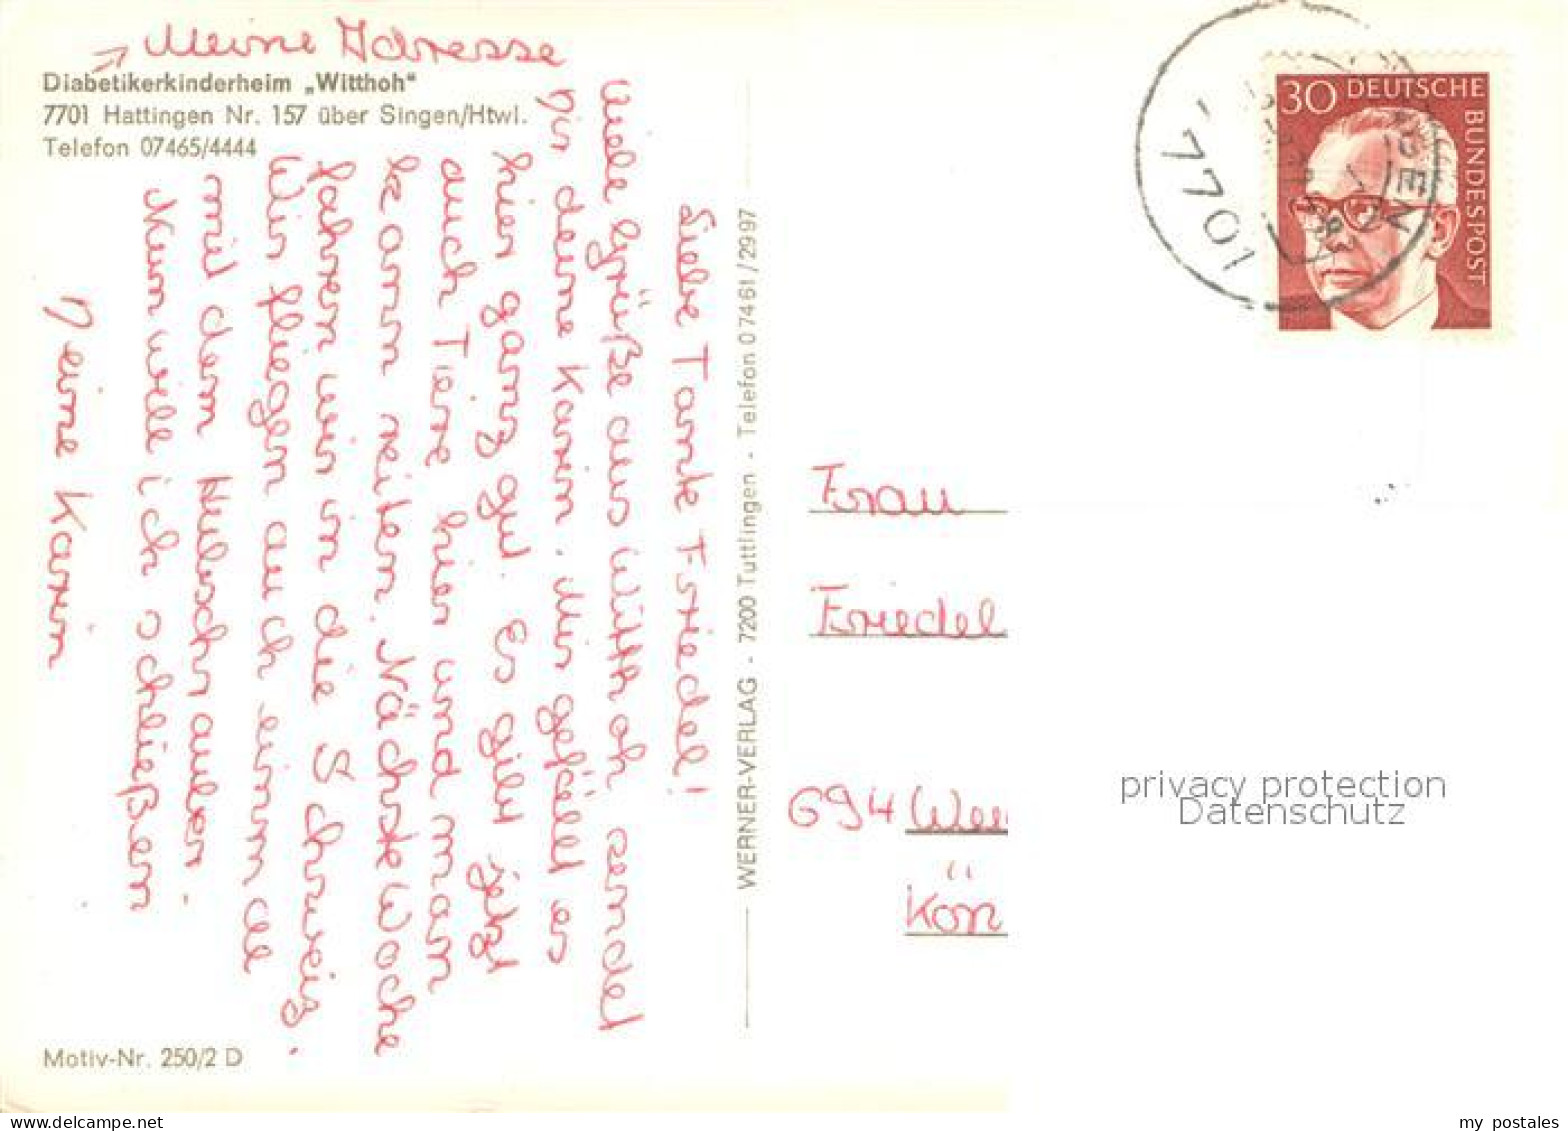 Meine Adresse
Diabetikerkinderheim „Witthoh“
7701 Hattingen Nr. 157 über Singen/Htwl.
Telefon 07465/4444
Liebe Tante Friedel!
Viele Grüße aus Witthoh sendet
dir deine Karin. Mir gefällt es
hier ganz gut. Es gibt jetzt
auch Tiere hier und man
kann reiten. Nächste Woche
fahren wir in die Schweiz.
Wir fliegen auch einmal
mit dem Hubschrauber.
Nun will ich schließen
Deine Karin
Motiv-Nr. 250/2 D
WERNER-VERLAG - 7200 Tuttlingen - Telefon 07461/2997
30 DEUTSCHE
BUNDESPOST
7701
Frau
Friedel
694
Kön
privacy protection
Datenschutz
my postales